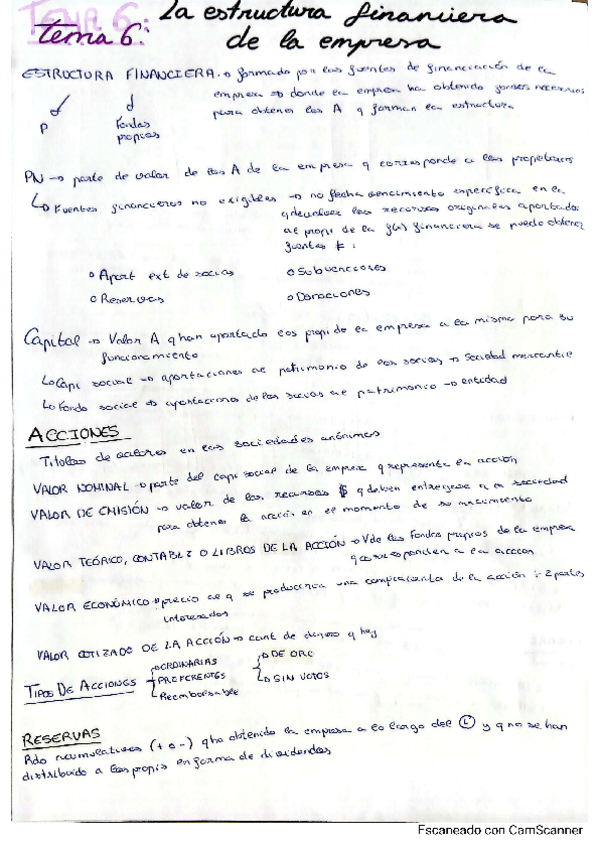 Tema 6: La estructura financiera
de la empresa
ESTRUCTURA FINANCIERA → formado por las fuentes de financiación de la
empresa → donde la empresa ha obtenido fondos necesarios
para obtener los A y forman la estructura
P Fondos
propios
PN → parte de valor de los A de la empresa q corresponde a los propietarios
↳ Fuentes financieros no exigibles → no fecha vencimiento específica en la
q devolver los recursos originales aportados
al propi de la financiera se puede obtener
fuentes
o Apart ext de socios o Subvenciones
o Reservas o Donaciones
Capital → Valor A q han aportado los propi de la empresa a la misma para su
funcionamiento
↳ Capi social → aportaciones al patrimonio de los socios → Sociedad mercantil
↳ Fondo social → aportaciones de los socios al patrimonio → entidad
ACCIONES
Titulos de valores en las sociedades anónimas
VALOR NOMINAL → parte del capi social de la empresa q representa la acción
VALOR DE EMISIÓN → valor de los recursos $ q deben entregarse a la sociedad
para obtener la acción en el momento de su nacimiento
VALOR TEÓRICO, CONTABLE O LIBROS DE LA ACCIÓN → V de los Fondos propios de la empresa
q corresponden a la acción
VALOR ECONÓMICO → precio al q se produciría una compraventa de la acción : 2 partes
interesadas
VALOR COTIZADO DE LA ACCIÓN → cant de dinero q hay
TIPOS DE ACCIONES → ORDINARIAS → DE ORO
→ PREFERENTES → SIN VOTOS
→ Reembolsable
RESERVAS
Rdo acumulativos (+ o -) q ha obtenido la empresa a lo largo del y q no se han
distribuido a los propis en forma de dividendos
Escaneado con CamScanner